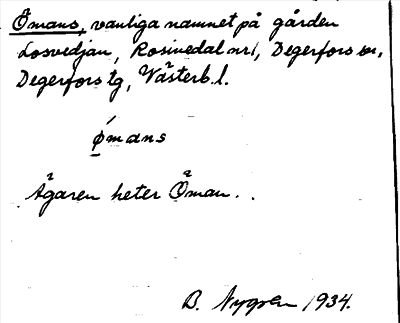 Ömans, vanliga namnet på gården
Losvedjan, Rosinedal nr 1, Degerfors sn,
Degerfors tg, Västerb. l.
ǿ̱mans
Ägaren heter Öman.
B. Nygren 1934.